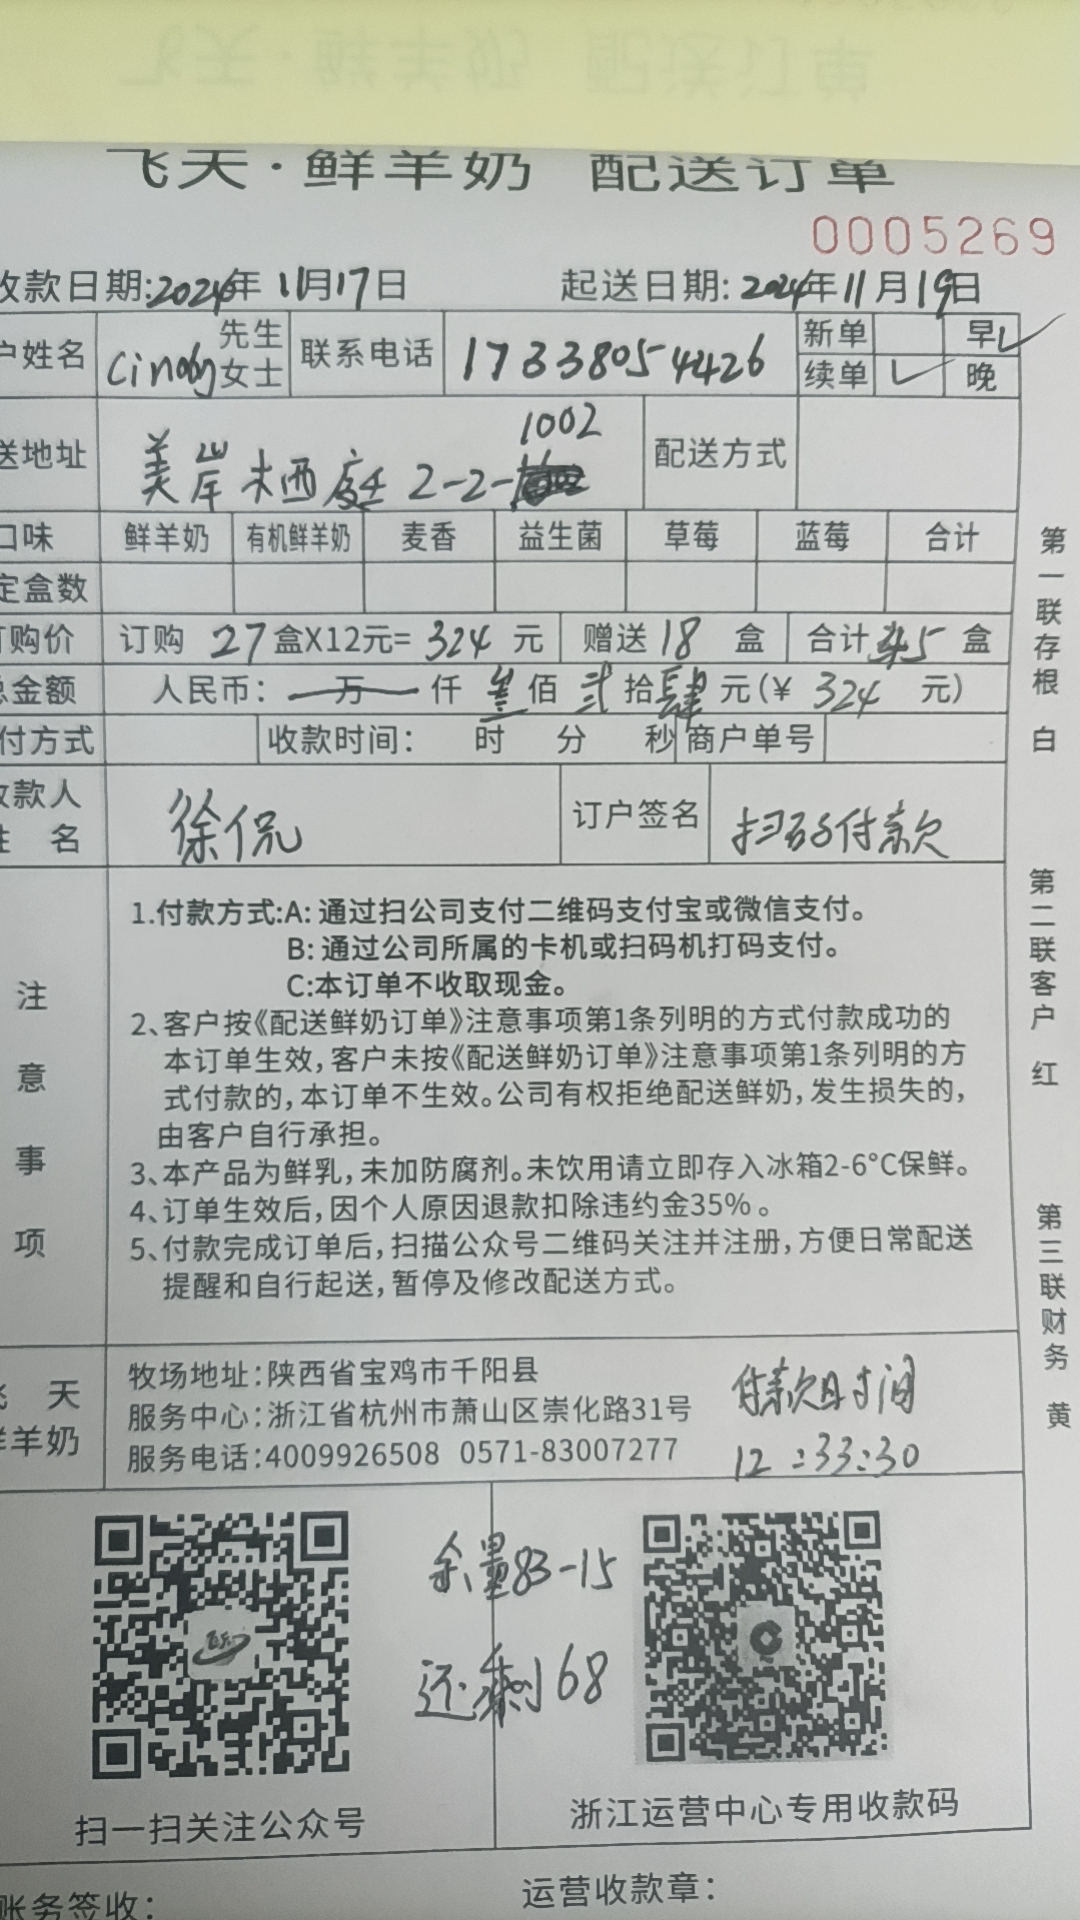 飞天·鲜羊奶 配送订单
0005269
收款日期:2024年11月17日 起送日期:2024年11月19日
户姓名 先生 女士 联系电话 17338054426 新单 早✓
续单 ✓ 晚
送地址 美岸栖庭 2-2- 1002 配送方式
口味 鲜羊奶 有机鲜羊奶 麦香 益生菌 草莓 蓝莓 合计
定盒数
订购价 订购 27 盒X12元= 324 元 赠送 18 盒 合计 45 盒
总金额 人民币: 万 仟 叁 佰 弍 拾 肆 元(¥ 324 元)
付方式 收款时间: 时 分 秒 商户单号
收款人
姓 名 徐侃 订户签名 扫码付款
注意事项
1.付款方式:A: 通过扫公司支付二维码支付宝或微信支付。
B: 通过公司所属的卡机或扫码机打码支付。
C:本订单不收取现金。
2、客户按《配送鲜奶订单》注意事项第1条列明的方式付款成功的
本订单生效,客户未按《配送鲜奶订单》注意事项第1条列明的方
式付款的,本订单不生效。公司有权拒绝配送鲜奶,发生损失的,
由客户自行承担。
3、本产品为鲜乳,未加防腐剂。未饮用请立即存入冰箱2-6°C保鲜。
4、订单生效后,因个人原因退款扣除违约金35%。
5、付款完成订单后,扫描公众号二维码关注并注册,方便日常配送
提醒和自行起送,暂停及修改配送方式。
飞 天
鲜羊奶
牧场地址:陕西省宝鸡市千阳县
服务中心:浙江省杭州市萧山区崇化路31号
服务电话:4009926508 0571-83007277
付款时间
12:33:30
余量83-15
还剩68
扫一扫关注公众号
浙江运营中心专用收款码
账务签收:
运营收款章:
第一联存根 白
第二联客户 红
第三联财务 黄